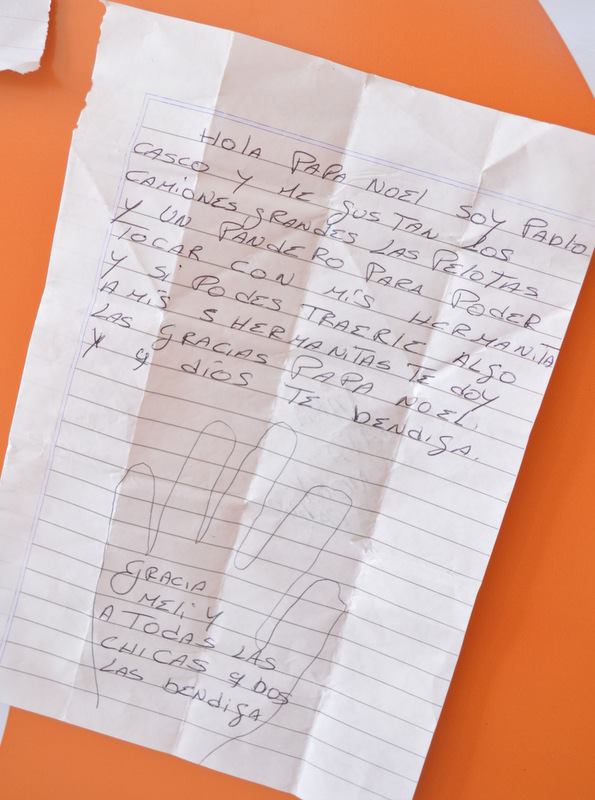 HOLA PAPA NOEL SOY PABLO
CASCO Y ME GUSTAN LOS
CAMIONES GRANDES LAS PELOTAS
Y UN PANDERO PARA PODER
TOCAR CON MIS HERMANITA
Y SI PODES TRAERLE ALGO
A MIS 5 HERMANITAS TE DOY
LAS GRACIAS PAPA NOEL.
Y q DIOS TE BENDIGA.
GRACIA
MELI Y
A TODAS LAS
CHICAS q DOS
LAS BENDIGA